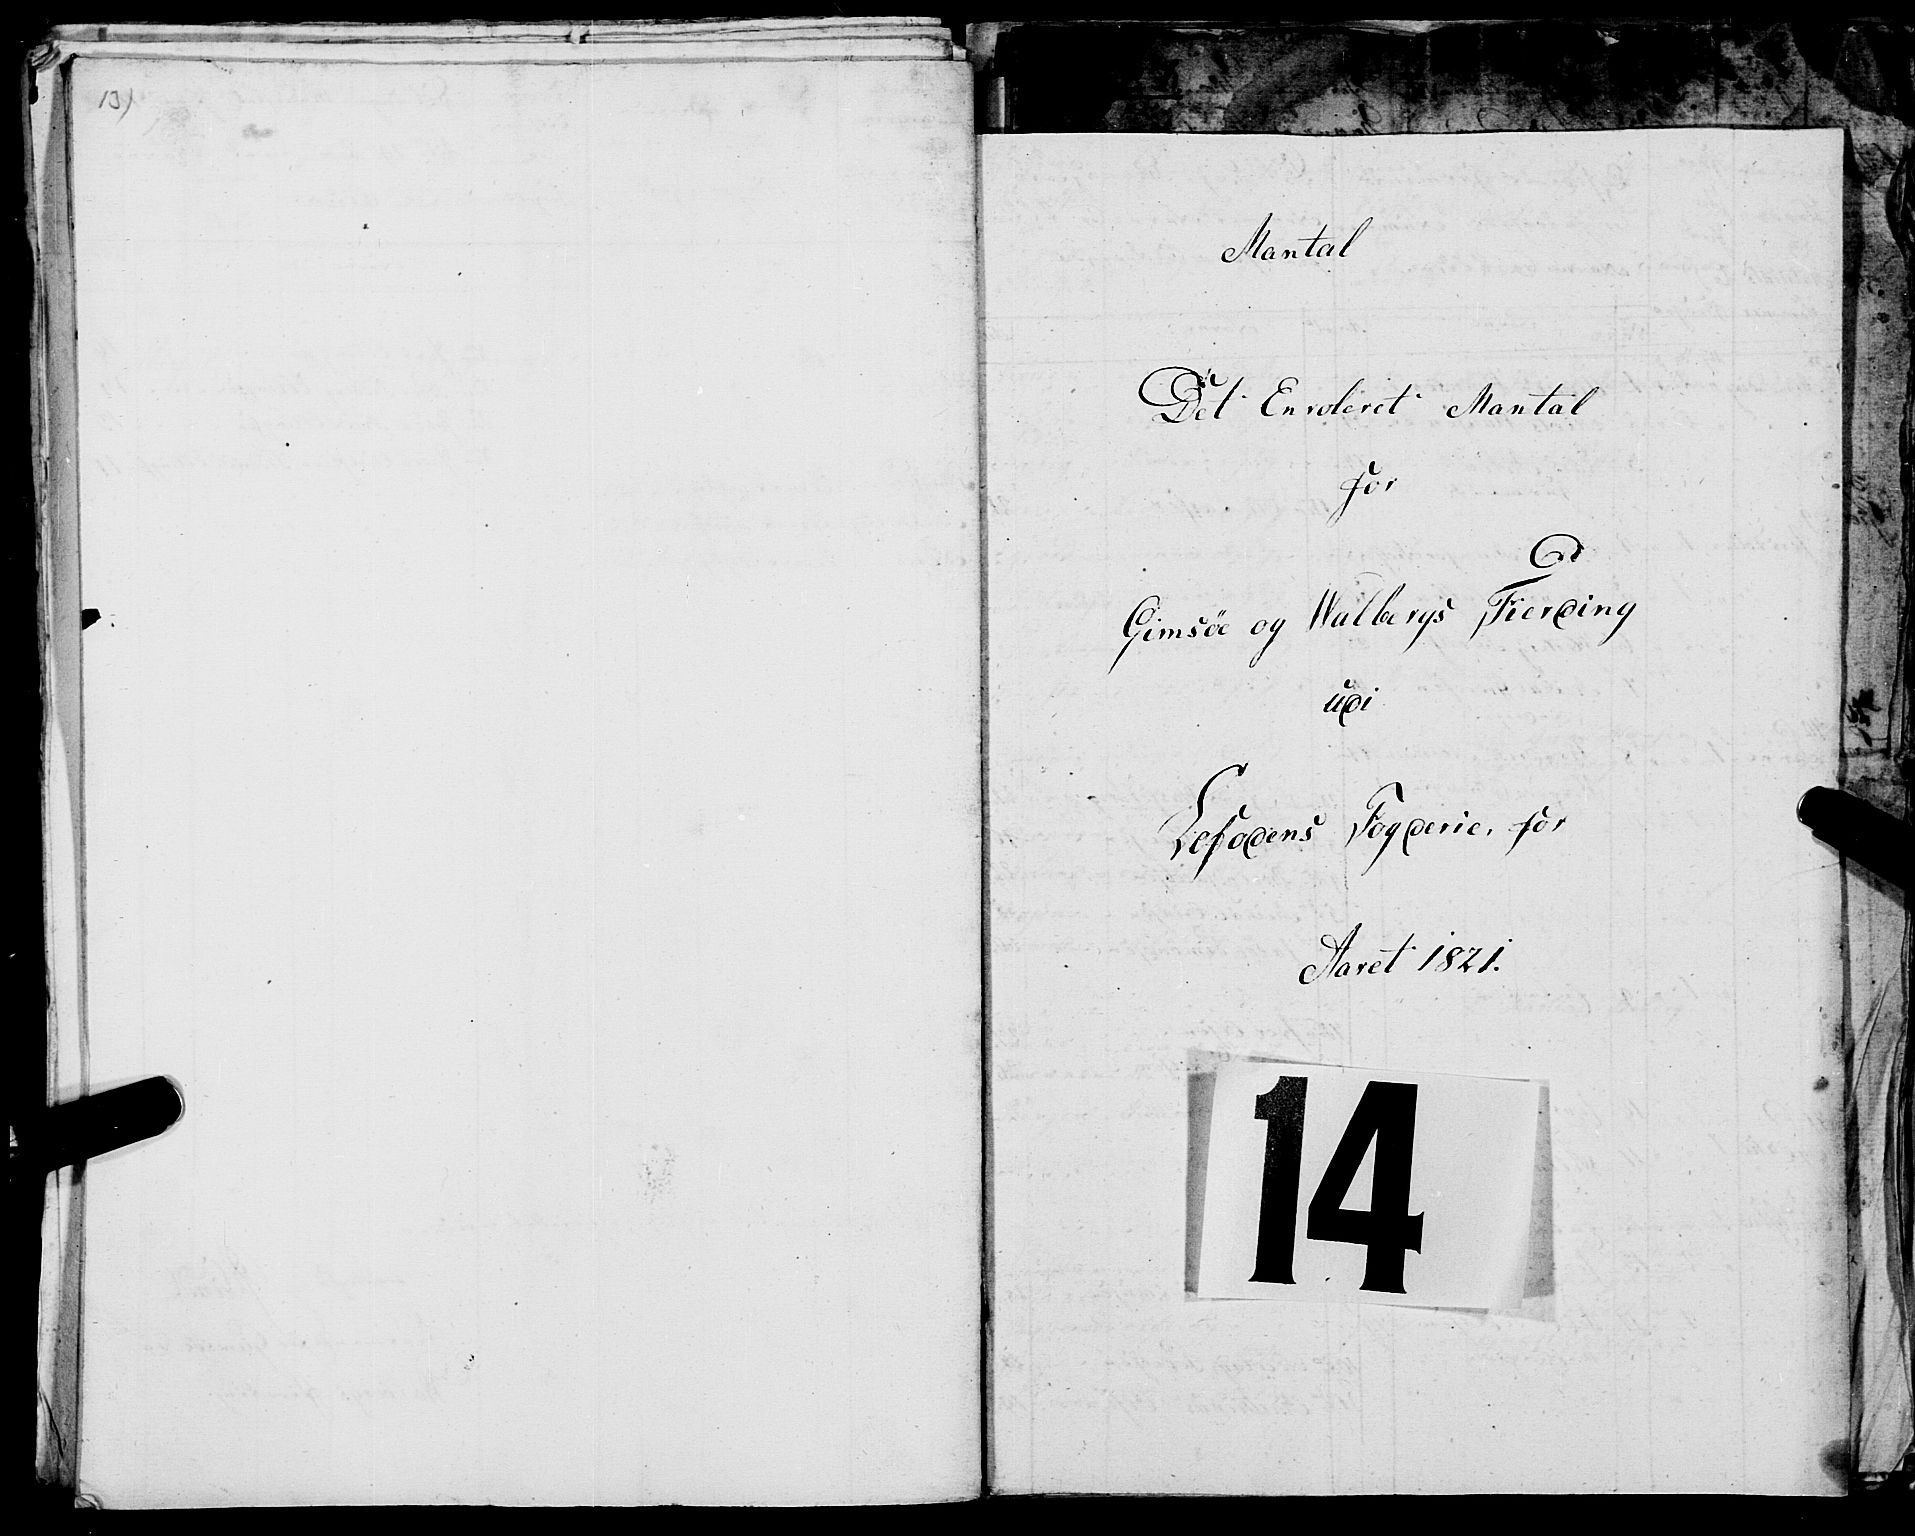 13)
Mantal
Det Enroleret Mantal
for
Gimsöe og Walbergs Fierding
udi
Lofodens Fogderie, for
Aaret 1821.
14